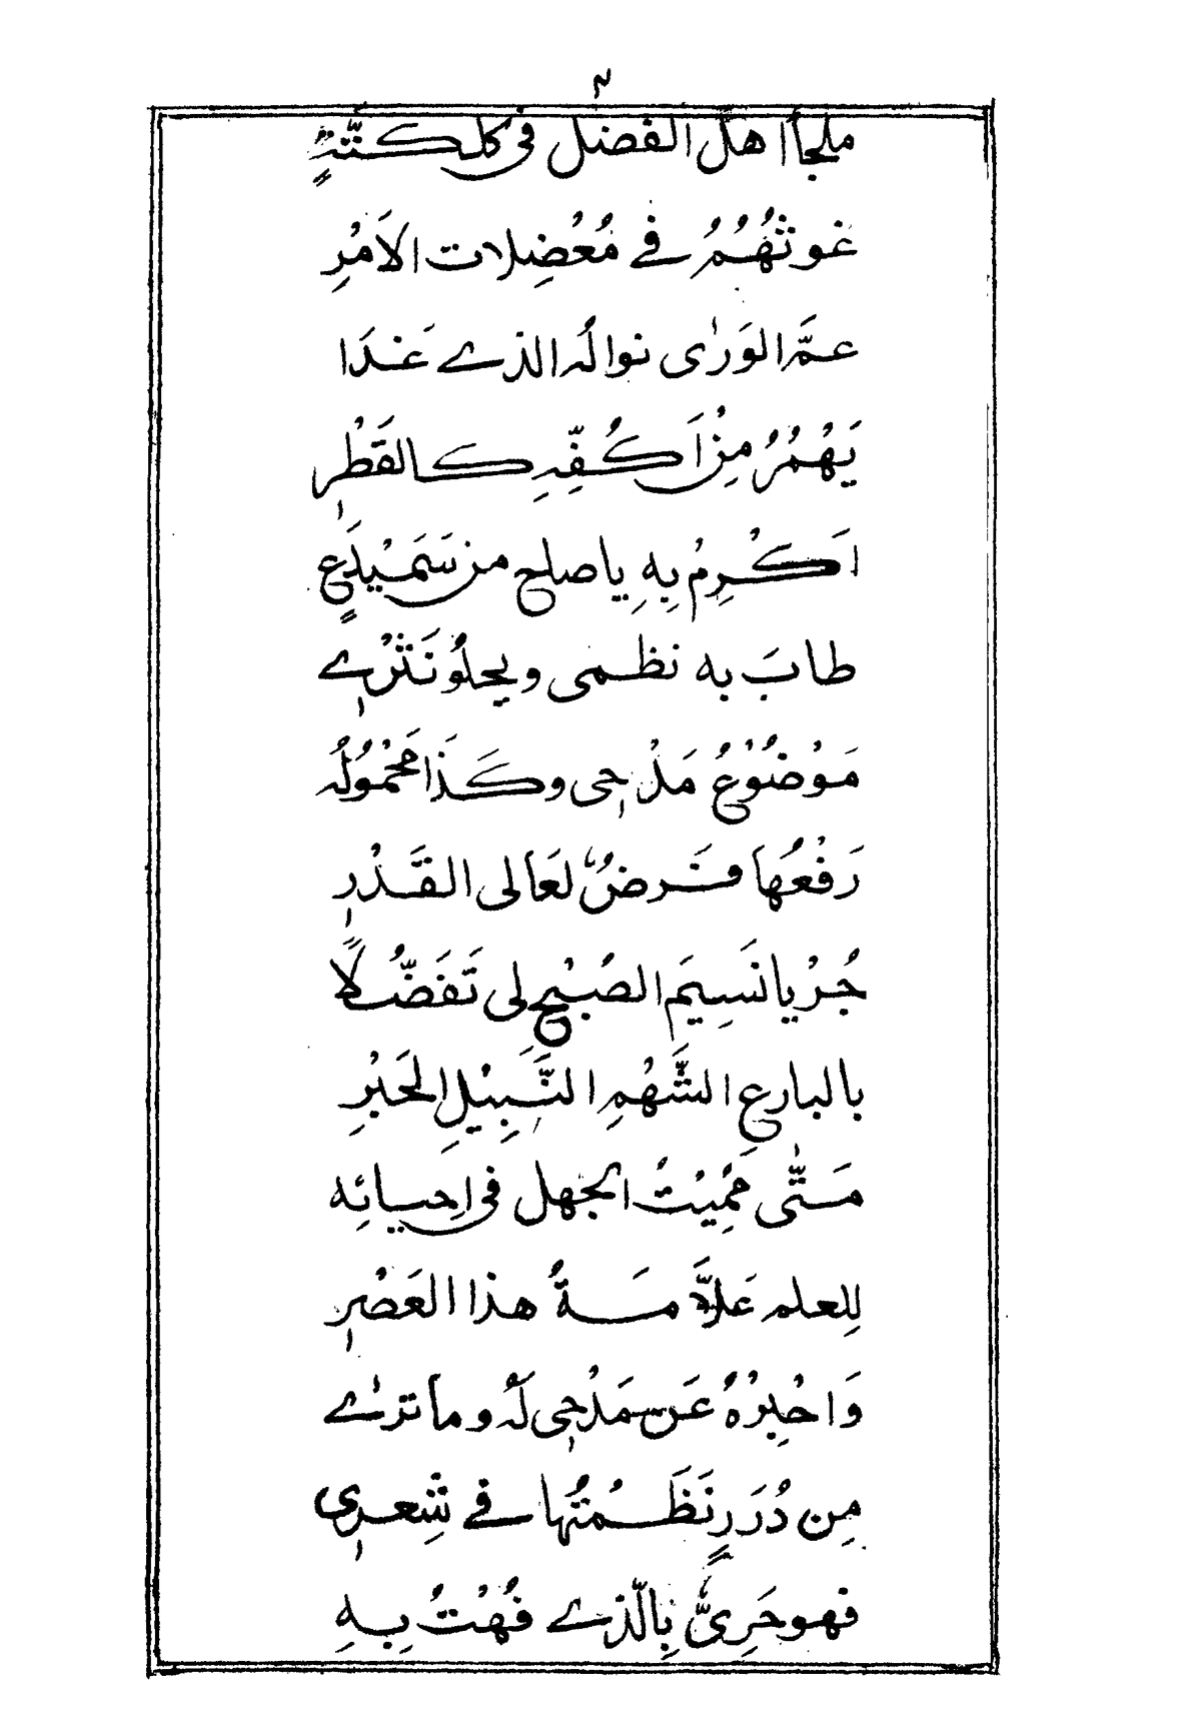 ٢
ملجأ اهل الفضل فى كل
غوثهُمُ فے مُعْضِلات الاَمْرِ
عمَّ الوَرٰى نوالُه الذے غَدَا
يَهْمُرُ مِنْ اَكُفِّهِ كالقَطْرِ
اَكْرِمْ بِهِ ياصاح من سَمَيْدَعٍ
طابَ به نظمى ويحلُو نَثْرِے
مَوْضُوْعُ مَدْحِى وكَذَا مَحْمُوْلُه
رَفْعُها فَرضٌ لعَالى القَدْرِ
جُرْ يا نَسِيَم الصُبْحِ لى تَفَضُّلًا
بالبارعِ الشَّهْمِ النَّبِيْلِ الحَبْرِ
مَتّٰى مُمِيْتُ الجهل فى احِيائِه
لِلعلم عَلاَّمَةُ هذا العَصْرِ
وَاخْبِرْهُ عَن مَدْحِى لَهُ وما ترٰے
مِن دُرَرٍ نَظَمْتُها فے شِعرِى
فهو حَرِىٌّ بِالّذے فُهْتُ بِهِ